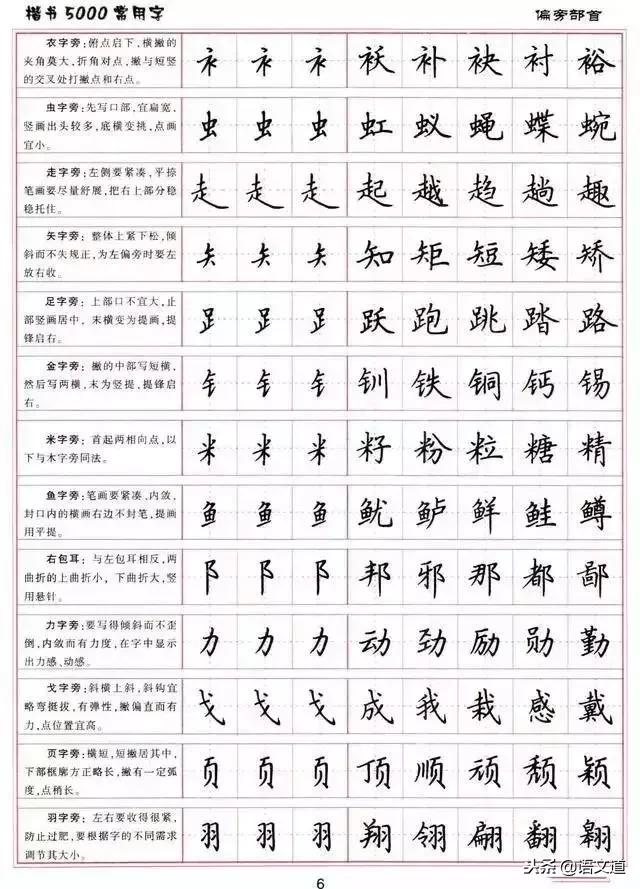 楷书5000常用字
偏旁部首
衣字旁:俯点启下,横撇的
夹角莫大,折角对点,撇与短竖
的交叉处打撇点和右点。
衤 衤 衤 袄 补 袂 衬 裕
虫字旁:先写口部,宜扁宽,
竖画出头较多,底横变挑,点画
宜小。
虫 虫 虫 虹 蚁 蝇 蝶 蜿
走字旁:左侧要紧凑,平捺
笔画要尽量舒展,把右上部分稳
稳托住。
走 走 走 起 越 趋 趟 趣
矢字旁:整体上紧下松,倾
斜而不失规正,为左偏旁时要左
放右收。
矢 矢 矢 知 矩 短 矮 矫
足字旁:上部口不宜大,止
部竖画居中,末横变为提画,提
锋启右。
𧾷 𧾷 𧾷 跃 跑 跳 踏 路
金字旁:撇的中部写短横,
然后写两横,末为竖提,提锋启
右。
钅 钅 钅 钏 铁 铜 钙 锡
米字旁:首起两相向点,以
下与木字旁同法。
米 米 米 籽 粉 粒 糖 精
鱼字旁:笔画要紧凑,内敛,
封口内的横画右边不封笔,提画
用平提。
鱼 鱼 鱼 鱿 鲈 鲜 鲑 鳟
右包耳:与左包耳相反,两
曲折的上曲折小,下曲折大,竖
用悬针。
阝 阝 阝 邦 邪 那 都 鄙
力字旁:要写得倾斜而不歪
倒,内敛而有力度,在字中显示
出力感、动感。
力 力 力 动 劲 励 勋 勤
戈字旁:斜横上斜,斜钩宜
略弯挺拔,有弹性,撇偏直而有
力,点位置宜高。
戈 戈 戈 成 我 栽 感 戴
页字旁:横短,短撇居其中,
下部框廓方正略长,撇有一定弧
度,点稍长。
页 页 页 顶 顺 顽 颓 颖
羽字旁:左右要收得很紧,
防止过肥,要根据字的不同需求
调节其大小。
羽 羽 羽 翔 翎 翩 翻 翱
6
头条@语文道